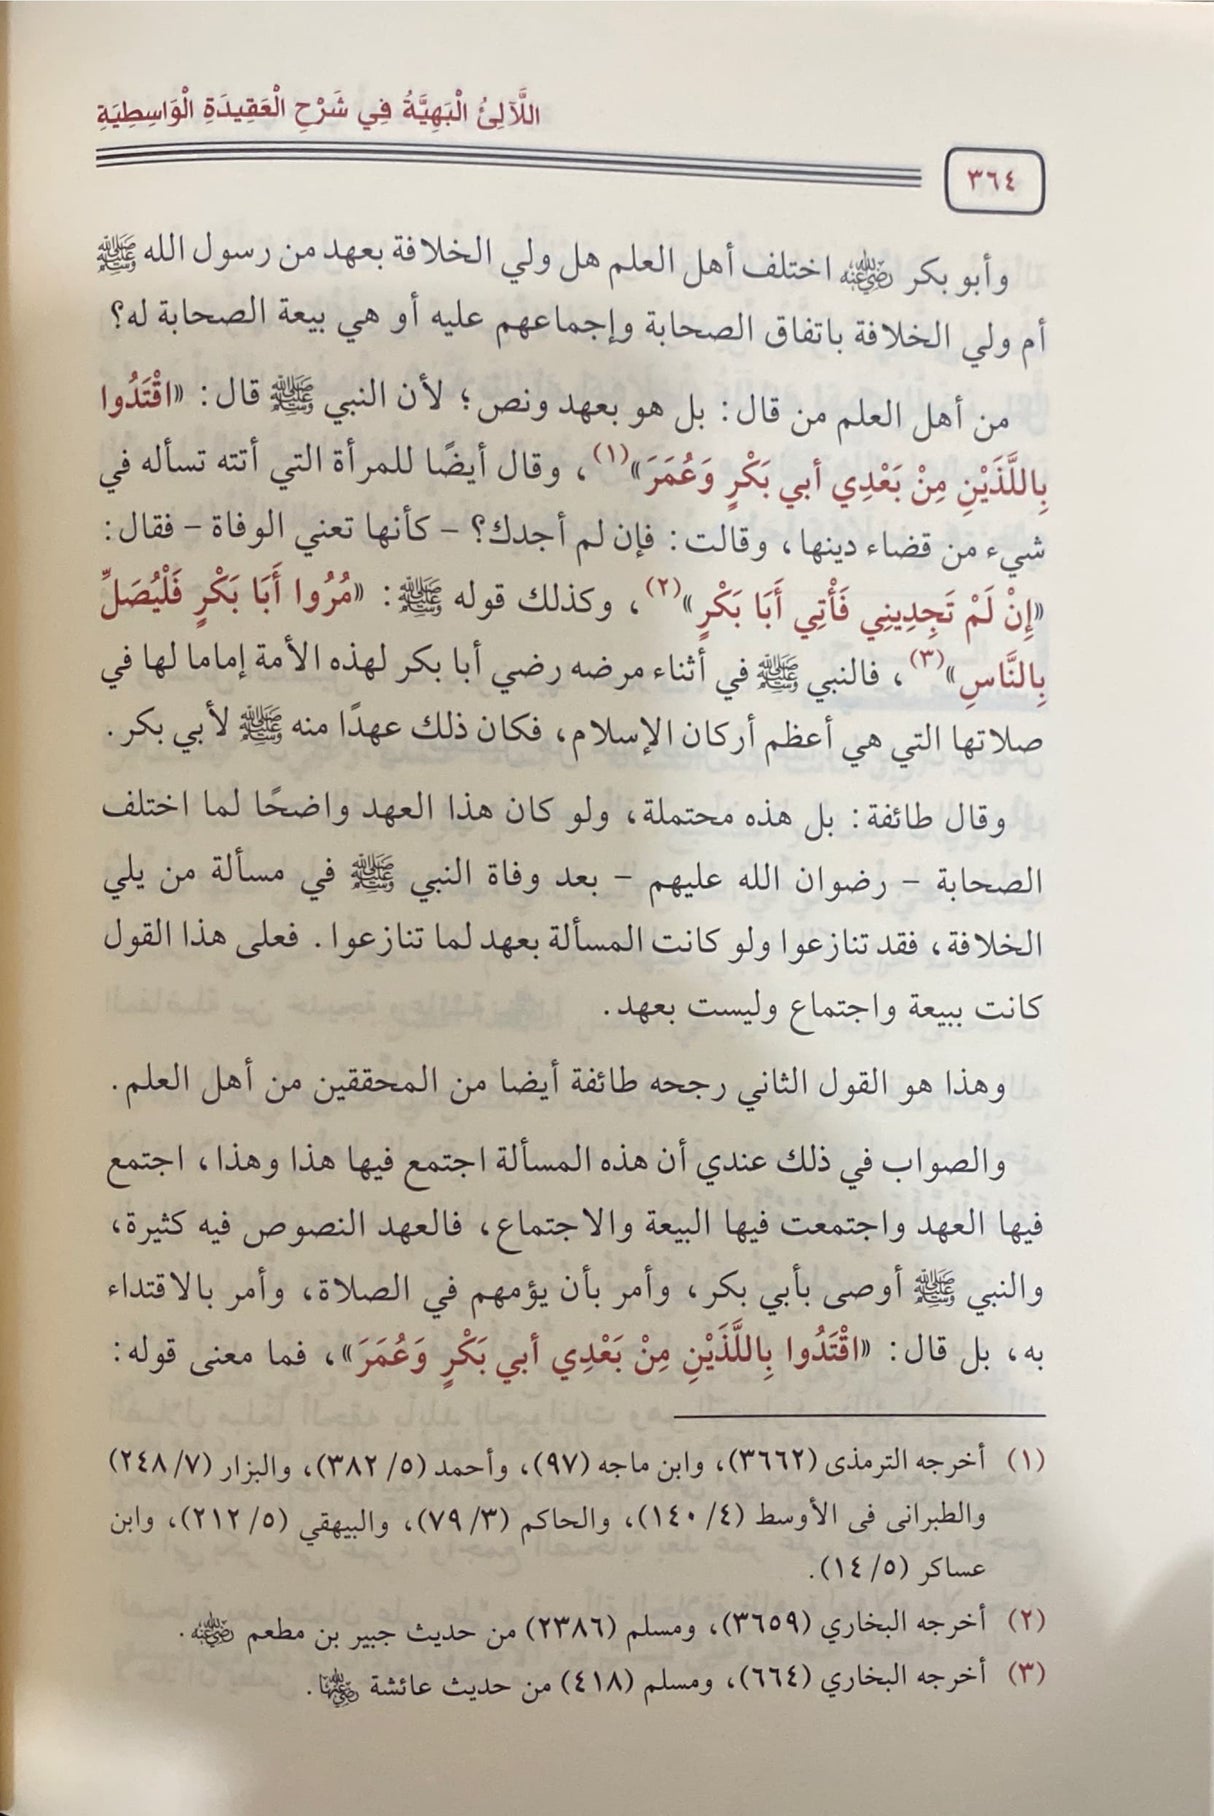 اللَّآلِئُ الْبَهِيَّةُ فِي شَرْحِ الْعَقِيدَةِ الْوَاسِطِيَةِ
٣٦٤
وأبو بكر رضي الله عنه اختلف أهل العلم هل ولي الخلافة بعهد من رسول الله ﷺ
أم ولي الخلافة باتفاق الصحابة وإجماعهم عليه أو هي بيعة الصحابة له؟
من أهل العلم من قال: بل هو بعهد ونص؛ لأن النبي ﷺ قال: «اقْتَدُوا
بِاللَّذَيْنِ مِنْ بَعْدِي أبي بَكْرٍ وَعُمَرَ»(١)، وقال أيضًا للمرأة التي أتته تسأله في
شيء من قضاء دينها، وقالت: فإن لم أجدك؟ - كأنها تعني الوفاة - فقال:
«إِنْ لَمْ تَجِدِينِي فَأْتِي أَبَا بَكْرٍ»(٢)، وكذلك قوله ﷺ: «مُرُوا أَبَا بَكْرٍ فَلْيُصَلِّ
بِالنَّاسِ»(٣)، فالنبي ﷺ في أثناء مرضه رضي أبا بكر لهذه الأمة إماما لها في
صلاتها التي هي أعظم أركان الإسلام، فكان ذلك عهدًا منه ﷺ لأبي بكر.
وقال طائفة: بل هذه محتملة، ولو كان هذا العهد واضحًا لما اختلف
الصحابة - رضوان الله عليهم - بعد وفاة النبي ﷺ في مسألة من يلي
الخلافة، فقد تنازعوا ولو كانت المسألة بعهد لما تنازعوا. فعلى هذا القول
كانت ببيعة واجتماع وليست بعهد.
وهذا هو القول الثاني رجحه طائفة أيضا من المحققين من أهل العلم.
والصواب في ذلك عندي أن هذه المسألة اجتمع فيها هذا وهذا، اجتمع
فيها العهد واجتمعت فيها البيعة والاجتماع، فالعهد النصوص فيه كثيرة،
والنبي ﷺ أوصى بأبي بكر، وأمر بأن يؤمهم في الصلاة، وأمر بالاقتداء
به، بل قال: «اقْتَدُوا بِاللَّذَيْنِ مِنْ بَعْدِي أبي بَكْرٍ وَعُمَرَ»، فما معنى قوله:
(١) أخرجه الترمذى (٣٦٦٢)، وابن ماجه (٩٧)، وأحمد (٥/ ٣٨٢)، والبزار (٧/ ٢٤٨)
والطبرانى فى الأوسط (٤/ ١٤٠)، والحاكم (٣/ ٧٩)، والبيهقي (٥/ ٢١٢)، وابن
عساكر (٥/ ١٤).
(٢) أخرجه البخاري (٣٦٥٩)، ومسلم (٢٣٨٦) من حديث جبير بن مطعم رضي الله عنه.
(٣) أخرجه البخاري (٦٦٤)، ومسلم (٤١٨) من حديث عائشة رضي الله عنها.